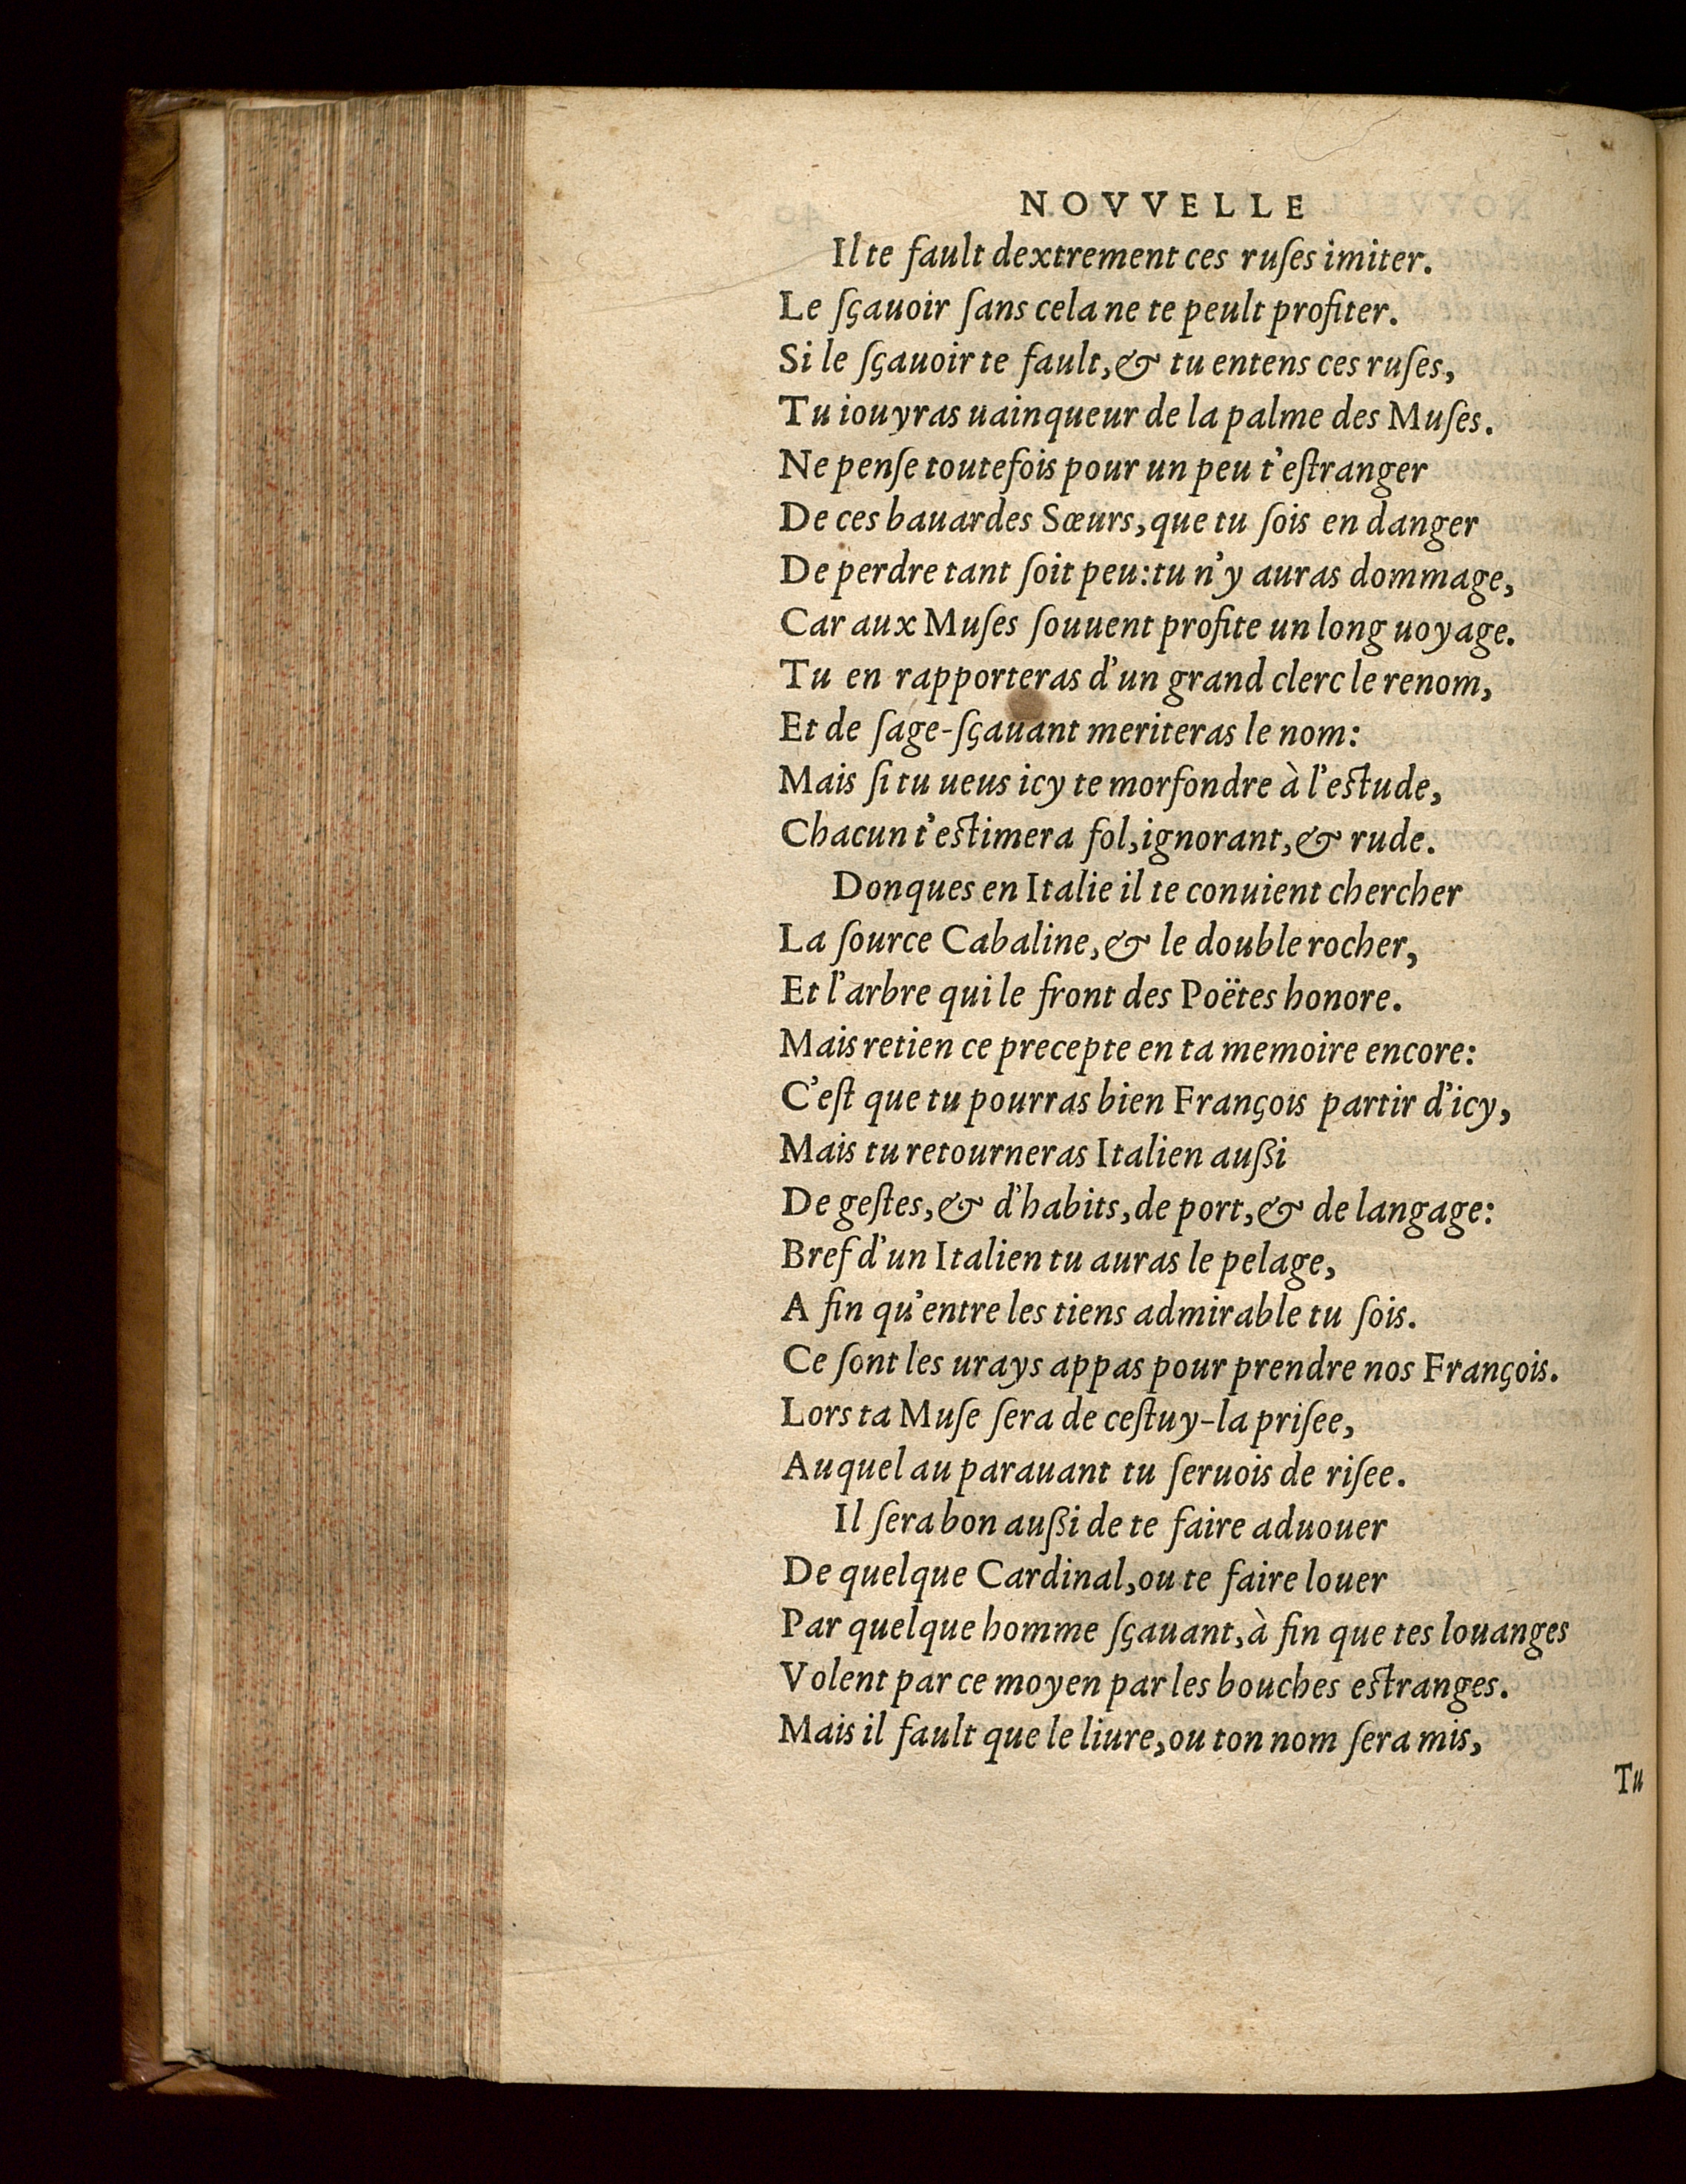 NOVVELLE
Il te fault dextrement ces ruſes imiter.
Le ſçauoir ſans cela ne te peult profiter.
Si le ſçauoir te fault, & tu entens ces ruſes,
Tu iouyras uainqueur de la palme des Muſes.
Ne penſe toutefois pour un peu t'eſtranger
De ces bauardes Sœurs, que tu ſois en danger
De perdre tant ſoit peu: tu n'y auras dommage,
Car aux Muſes ſouuent profite un long uoyage.
Tu en rapporteras d'un grand clerc le renom,
Et de ſage-ſçauant meriteras le nom:
Mais ſi tu ueus icy te morfondre à l'eſtude,
Chacun t'eſtimera fol, ignorant, & rude.
Donques en Italie il te conuient chercher
La ſource Cabaline, & le double rocher,
Et l'arbre qui le front des Poëtes honore.
Mais retien ce precepte en ta memoire encore:
C'eſt que tu pourras bien François partir d'icy,
Mais tu retourneras Italien auſſi
De geſtes, & d'habits, de port, & de langage:
Bref d'un Italien tu auras le pelage,
A fin qu'entre les tiens admirable tu ſois.
Ce ſont les urays appas pour prendre nos François.
Lors ta Muſe ſera de ceſtuy-la priſee,
Auquel au parauant tu ſeruois de riſee.
Il ſera bon auſſi de te faire aduouer
De quelque Cardinal, ou te faire louer
Par quelque homme ſçauant, à fin que tes louanges
Volent par ce moyen par les bouches eſtranges.
Mais il fault que le liure, ou ton nom ſera mis,
Tu